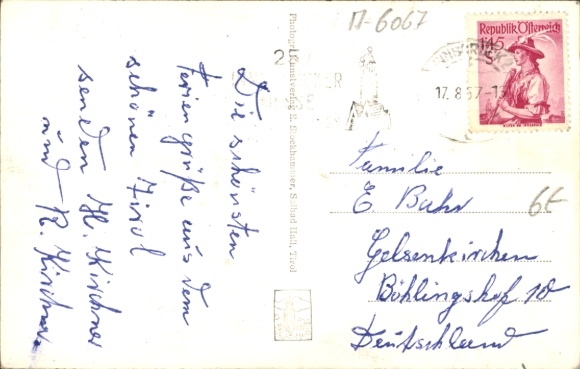 Π-6067
Republik Österreich
1.45
INNSBRUCK 2
17.8.57-1
Die schönsten
Feriengrüße aus dem
schönen Tirol
senden H. Kirchner
und R. Kirchner
Photogr. Kunstverlag E. Stockhammer, Solbad Hall, Tirol
Familie
E. Bahr
Gelsenkirchen
Böhlingshof 10
Deutschland
6€